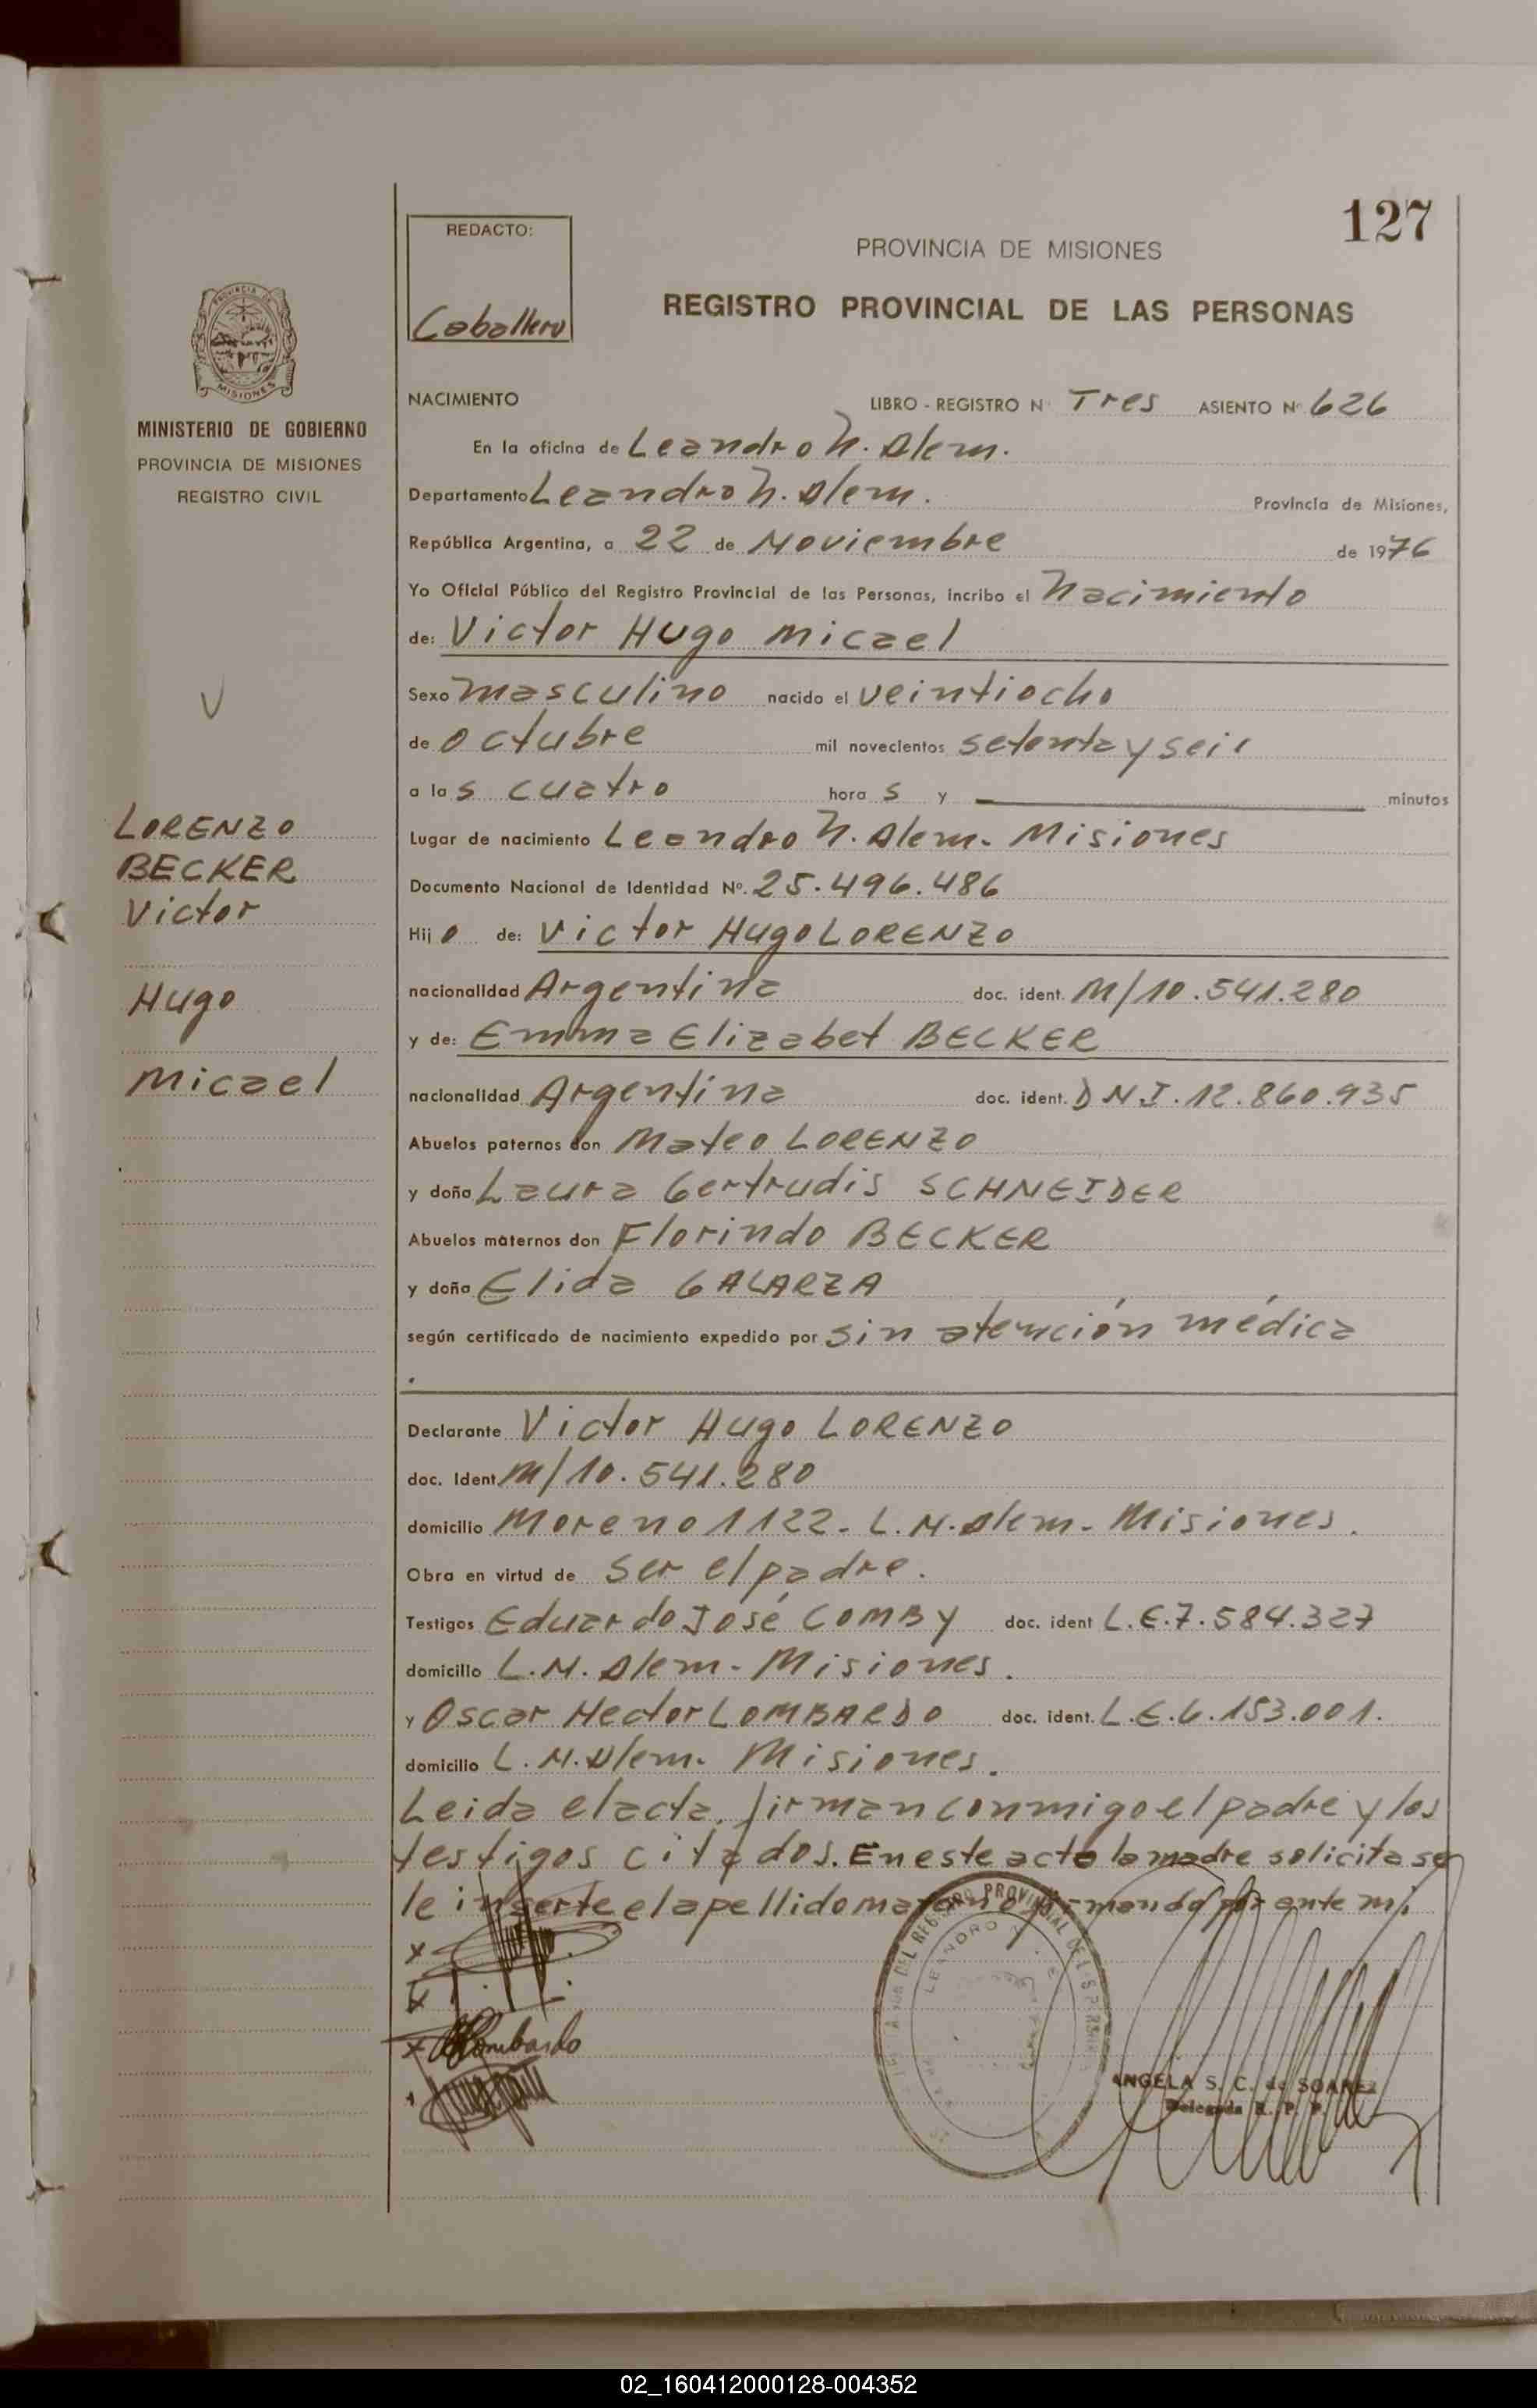 127
REDACTO:
Caballero
PROVINCIA DE MISIONES
REGISTRO PROVINCIAL DE LAS PERSONAS
MINISTERIO DE GOBIERNO
PROVINCIA DE MISIONES
REGISTRO CIVIL
NACIMIENTO LIBRO - REGISTRO N Tres ASIENTO Nº 626
En la oficina de Leandro N. Alem.
Departamento Leandro N. Alem. Provincia de Misiones,
República Argentina, a 22 de Noviembre de 1976
Yo Oficial Público del Registro Provincial de las Personas, incribo el Nacimiento
de: Victor Hugo Micael
Sexo masculino nacido el veintiocho
de octubre mil novecientos setenta y seis
a las cuatro horas y — minutos
Lugar de nacimiento Leandro N. Alem. Misiones
Documento Nacional de Identidad Nº. 25.496.486
Hijo de: Victor Hugo LORENZO
nacionalidad Argentina doc. ident. M/10.541.280
y de: Emma Elizabet BECKER
nacionalidad Argentina doc. ident. DNI.12.860.935
Abuelos paternos don Mateo LORENZO
y doña Laura Gertrudis SCHNEIDER
Abuelos maternos don Florindo BECKER
y doña Elida GALARZA
según certificado de nacimiento expedido por sin atención médica
LORENZO
BECKER
Victor
Hugo
Micael
Declarante Victor Hugo LORENZO
doc. Ident. M/10.541.280
domicilio Moreno 1122. L.N. Alem. Misiones.
Obra en virtud de ser el padre.
Testigos Eduardo José COMBY doc. ident L.E.7.584.327
domicilio L.N. Alem. Misiones.
y Oscar Hector LOMBARDO doc. ident. L.E.6.153.001.
domicilio L.N. Alem. Misiones.
Leida el acta, firman conmigo el padre y los
testigos citados. En este acto la madre solicita se
le inserte el apellido materno firmando por ante mi.
Lombardo
ANGELA S. C. de SOAREZ
Delegada R. P. P.
02_160412000128-004352